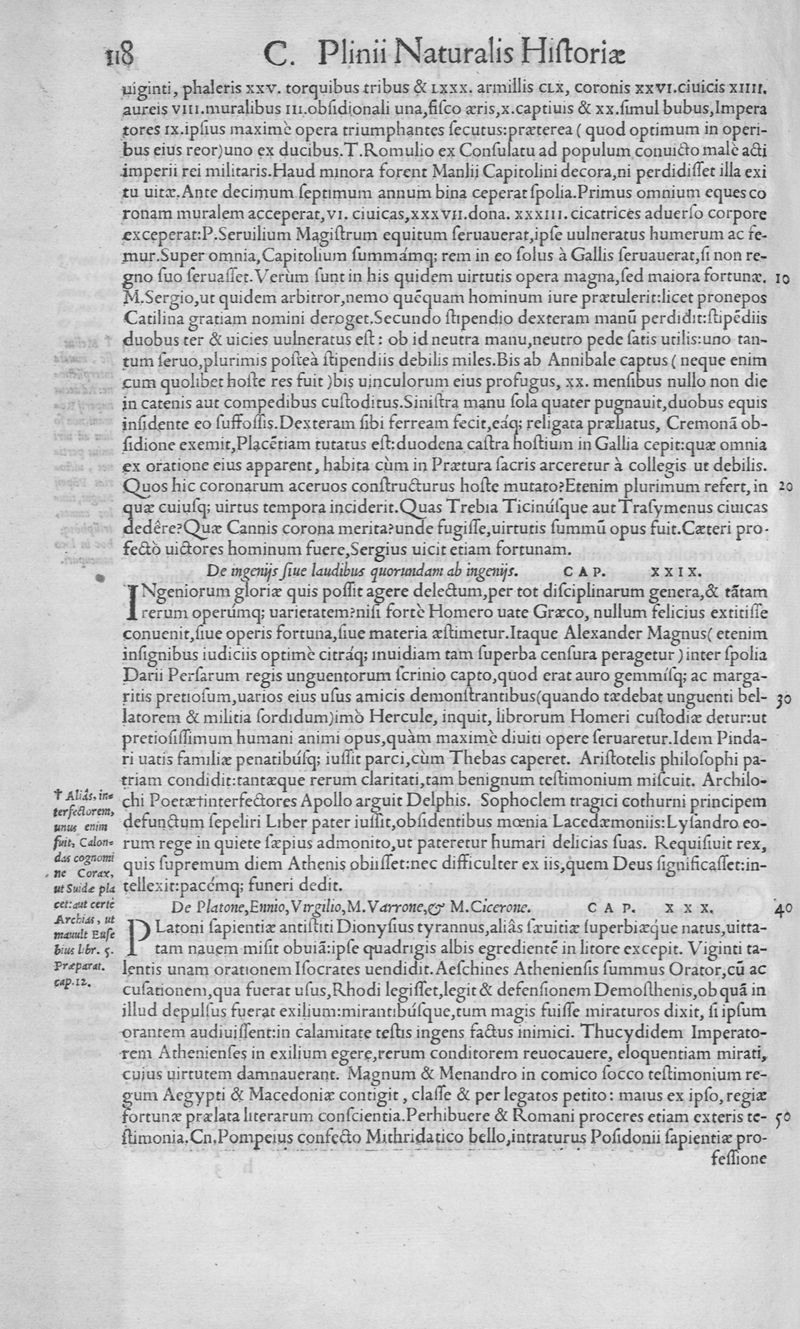 118 C. Plinii Naturalis Hiſtoriæ
uiginti, phaleris xxv. torquibus tribus & lxxx. armillis clx, coronis xxvi.ciuicis xiiii.
aureis viii.muralibus iii.obſidionali una,fiſco æris,x.captiuis & xx.ſimul bubus,Impera
tores ix.ipſius maximè opera triumphantes ſecutus:præterea ( quod optimum in operi-
bus eius reor)uno ex ducibus.T.Romulio ex Conſulatu ad populum conuicto malè acti
imperii rei militaris.Haud minora forent Manlii Capitolini decora,ni perdidiſſet illa exi
tu uitæ.Ante decimum ſeptimum annum bina ceperat ſpolia.Primus omnium eques co
ronam muralem acceperat,vi. ciuicas,xxxvii.dona. xxxiii.cicatrices aduerſo corpore
exceperat:P.Seruilium Magiſtrum equitum ſeruauerat,ipſe uulneratus humerum ac fe-
mur.Super omnia,Capitolium ſummámq; rem in eo ſolus à Gallis ſeruauerat,ſi non re-
gno ſuo ſeruaſſet.Verùm ſunt in his quidem uirtutis opera magna,ſed maiora fortunæ. 10
M.Sergio,ut quidem arbitror,nemo quẽquam hominum iure prætulerit:licet pronepos
Catilina gratiam nomini deroget.Secundo ſtipendio dexteram manũ perdidit:ſtipẽdiis
duobus ter & uicies uulneratus eſt : ob id neutra manu,neutro pede ſatis utilis:uno tan-
tum ſeruo,plurimis poſteà ſtipendiis debilis miles.Bis ab Annibale captus ( neque enim
cum quolibet hoſte res fuit )bis uinculorum eius profugus, xx. menſibus nullo non die
in catenis aut compedibus cuſtoditus.Siniſtra manu ſola quater pugnauit,duobus equis
inſidente eo ſuffoſſis.Dexteram ſibi ferream fecit,eáq; religata præliatus, Cremonã ob-
ſidione exemit,Placẽtiam tutatus eſt:duodena caſtra hoſtium in Gallia cepit:quæ omnia
ex oratione eius apparent, habita cùm in Prætura ſacris arceretur à collegis ut debilis.
Quos hic coronarum aceruos conſtructurus hoſte mutato?Etenim plurimum refert,in 20
quæ cuiuſq; uirtus tempora inciderit.Quas Trebia Ticinúſque aut Traſymenus ciuicas
dedêre?Quæ Cannis corona merita?unde fugiſſe,uirtutis ſummũ opus fuit.Cæteri pro-
fectò uictores hominum fuere,Sergius uicit etiam fortunam.
De ingenijs ſiue laudibus quorundam ab ingenijs. CAP. XXIX.
INgeniorum gloriæ quis poſſit agere delectum,per tot diſciplinarum genera,& tãtam
rerum operúmq; uarietatem?niſi fortè Homero uate Græco, nullum felicius extitiſſe
conuenit,ſiue operis fortuna,ſiue materia æſtimetur.Itaque Alexander Magnus( etenim
inſignibus iudiciis optimè citráq; inuidiam tam ſuperba cenſura peragetur ) inter ſpolia
Darii Perſarum regis unguentorum ſcrinio capto,quod erat auro gemmíſq; ac marga-
ritis pretioſum,uarios eius uſus amicis demonſtrantibus(quando tædebat unguenti bel- 30
latorem & militia ſordidum)imò Hercule, inquit, librorum Homeri cuſtodiæ detur:ut
pretioſiſſimum humani animi opus,quàm maximè diuiti opere ſeruaretur.Idem Pinda-
ri uatis familiæ penatibúſq; iuſſit parci,cùm Thebas caperet. Ariſtotelis philoſophi pa-
triam condidit:tantæque rerum claritati,tam benignum teſtimonium miſcuit. Archilo-
chi Poetæ†interfectores Apollo arguit Delphis. Sophoclem tragici cothurni principem
defunctum ſepeliri Liber pater iuſſit,obſidentibus mœnia Lacedæmoniis:Lyſandro eo-
rum rege in quiete ſæpius admonito,ut pateretur humari delicias ſuas. Requiſiuit rex,
quis ſupremum diem Athenis obiiſſet:nec difficulter ex iis,quem Deus ſignificaſſet:in-
tellexit:pacémq; funeri dedit.
† Aliâs, in-
terfectorem,
unus enim
fuit, Calon-
das cognomi
ne Corax,
ut Suidæ pla
cet: aut certè
Archias, ut
mauult Euſe
bius libr. 5.
Præparat.
cap.12.
De Platone,Ennio,Virgilio,M.Varrone,& M.Cicerone. CAP. XXX. 40
PLatoni ſapientiæ antiſtiti Dionyſius tyrannus,aliâs ſæuitiæ ſuperbiæq́ue natus,uitta-
tam nauem miſit obuiã:ipſe quadrigis albis egredientẽ in litore excepit. Viginti ta-
lentis unam orationem Iſocrates uendidit.Aeſchines Athenienſis ſummus Orator,cũ ac
cuſationem,qua fuerat uſus,Rhodi legiſſet,legit & defenſionem Demoſthenis,ob quã in
illud depulſus fuerat exilium:mirantibúſque,tum magis fuiſſe miraturos dixit, ſi ipſum
orantem audiuiſſent:in calamitate teſtis ingens factus inimici. Thucydidem Imperato-
rem Athenienſes in exilium egere,rerum conditorem reuocauere, eloquentiam mirati,
cuius uirtutem damnauerant. Magnum & Menandro in comico ſocco teſtimonium re-
gum Aegypti & Macedoniæ contigit , claſſe & per legatos petito : maius ex ipſo, regiæ
fortunæ prælata literarum conſcientia.Perhibuere & Romani proceres etiam exteris te- 50
ſtimonia.Cn.Pompeius confecto Mithridatico bello,intraturus Poſidonii ſapientiæ pro-
feſſione